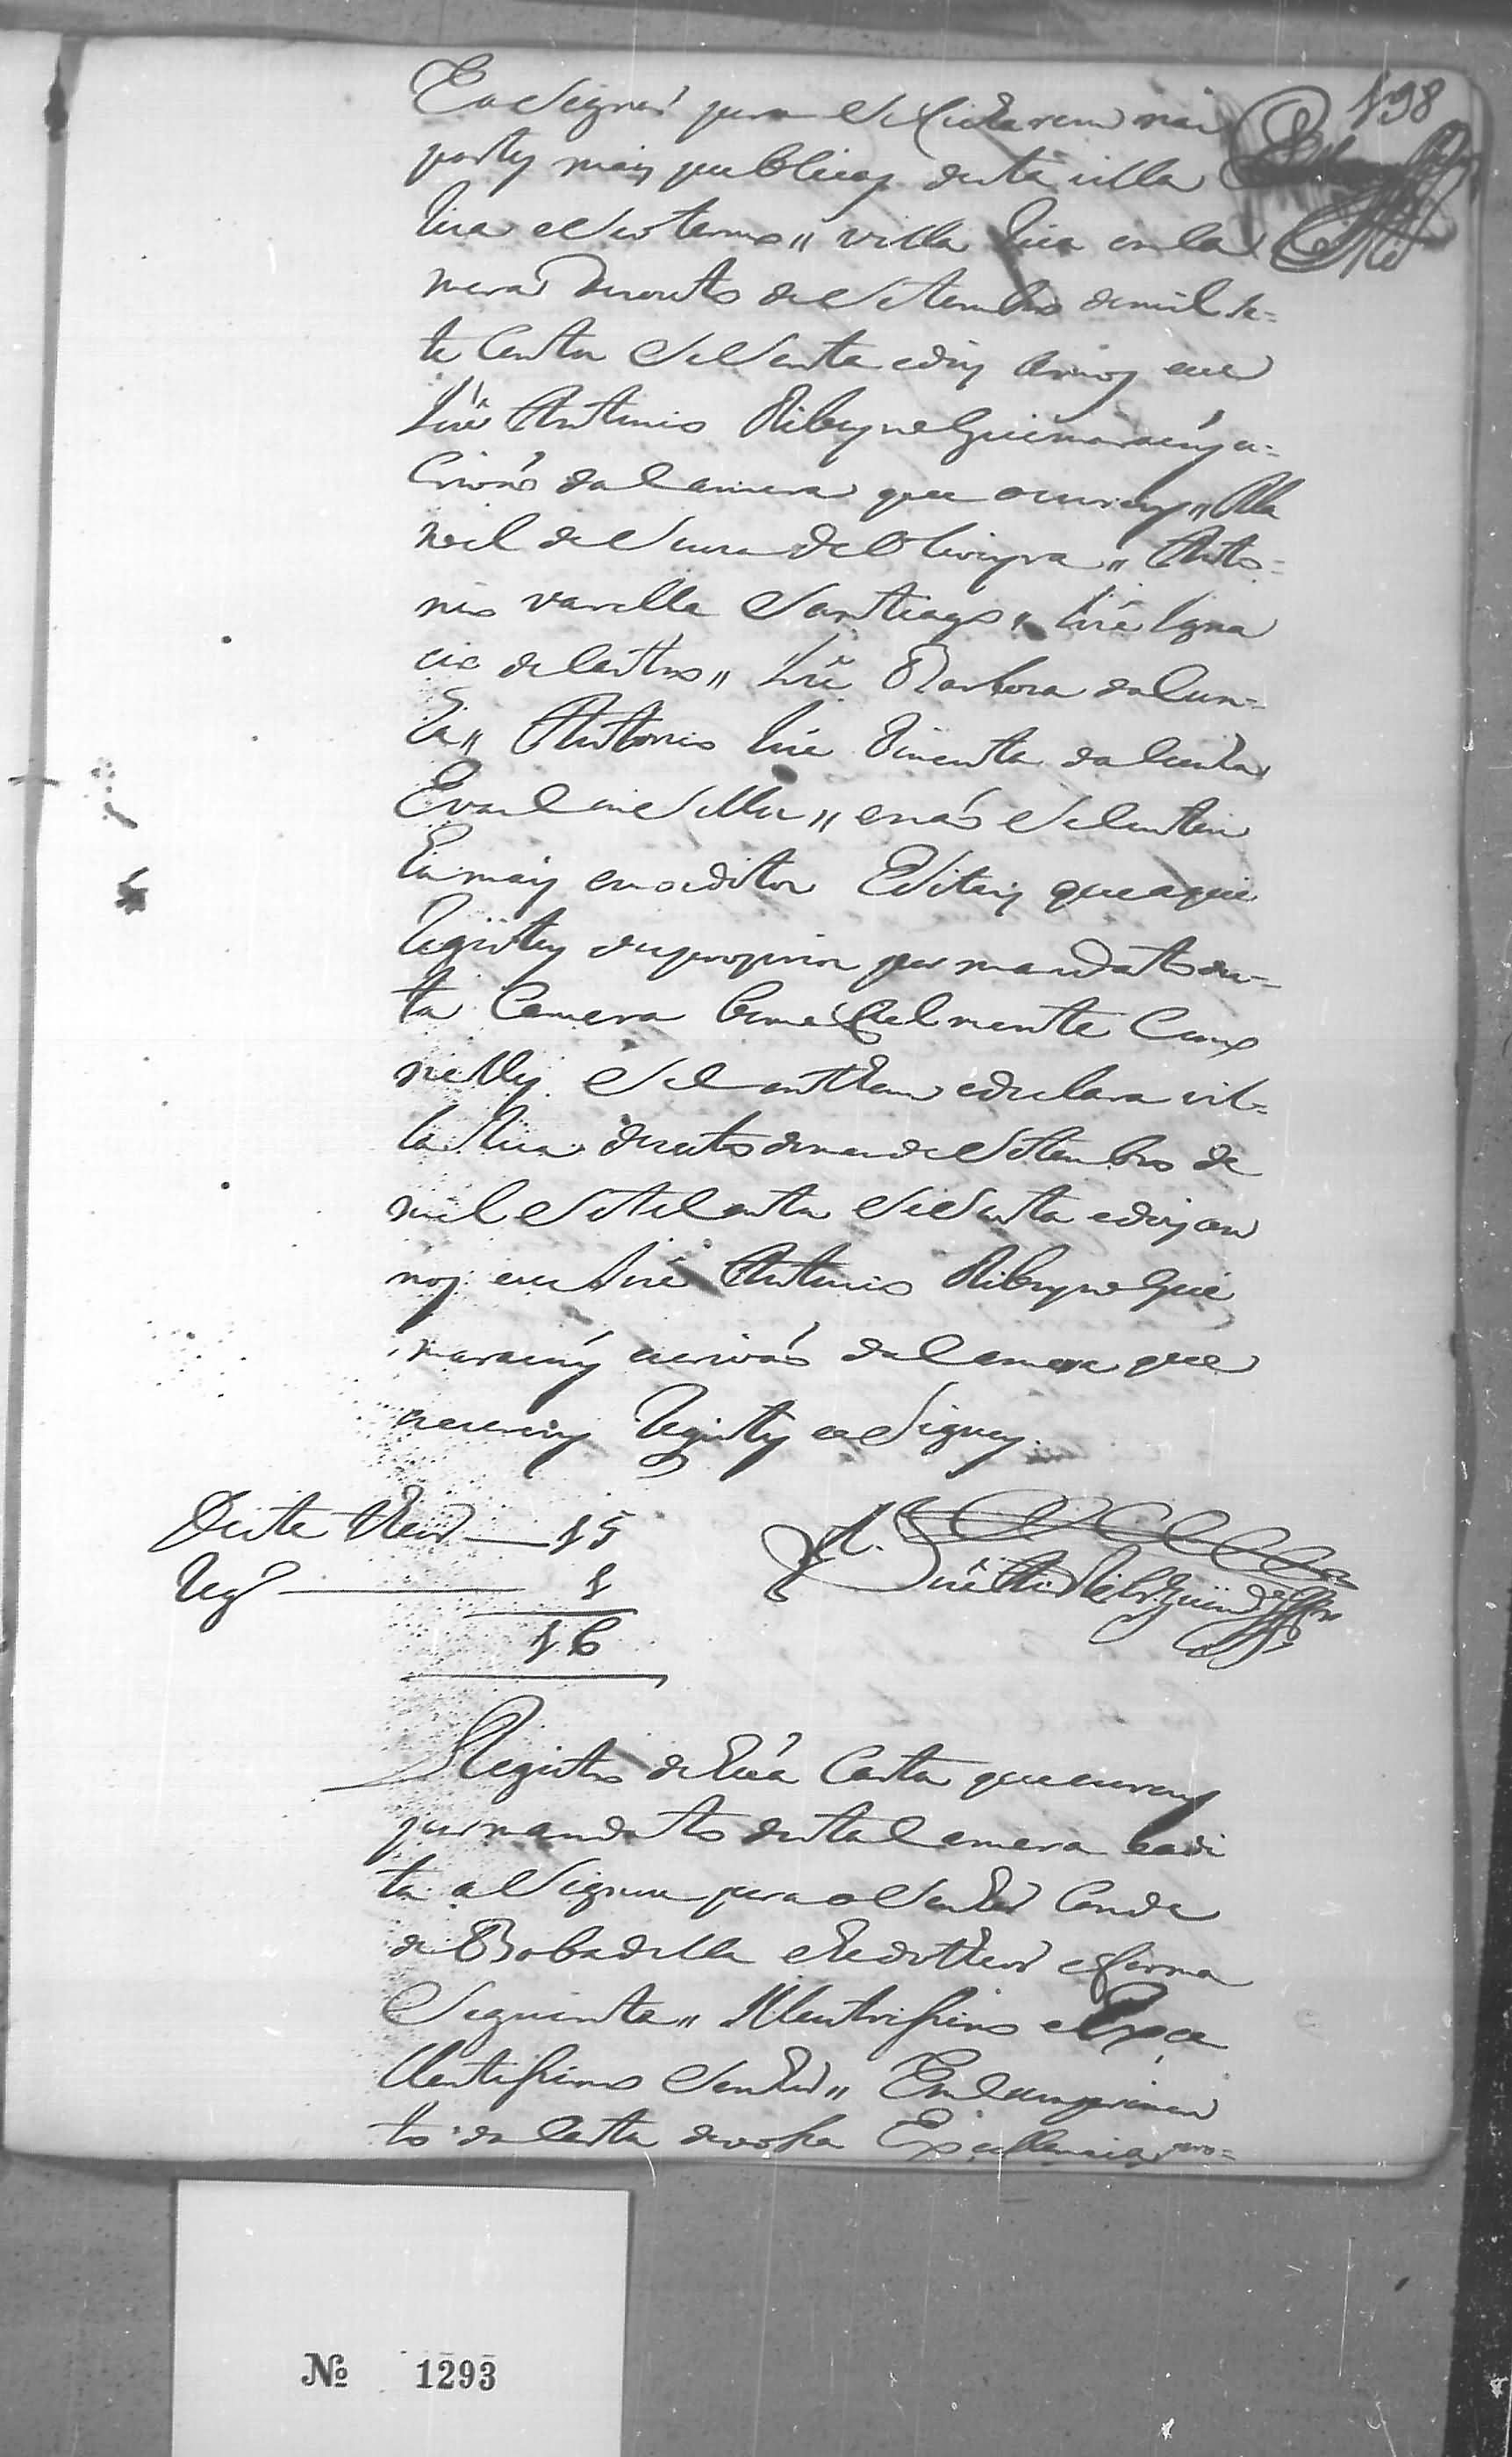 198
E aSignei para Se fixarem nas
partes mais publicas desta villa
Rica e Seu termo " villa Rica em Ca
mera de outo de Setembro de mil Se=
te Centos e SeSenta e dois annos eu
Jozé Antonio Ribeyro Guimaraens es=
Crivaó da Camera que o escrevy " Ma
noel de Souza de Oliveyra " Anto=
nio varella Santiago " Jozé Igna
cio de Castro " Jozé Barboza da Cun=
ha " Antonio Jozé Pimenta da Cunha
E vaSconSellos " e naó Se Continha
mais em o dito Edital que aqui
Registey do proprio por mandato des=
ta Camera bem e fielmente Como
nelle Se Conthem e declara vil=
la Rica de outo do mes de Setembro de
mil e SeteCentos e SeSenta e dois an
nos eu Jozé Antonio Ribeyro Gui
maraens escrivaó da Camera que
escrevy Registey e aSigney
Deste
15
Reg
1
16
Jozé Anto Ribro Guim
Registo de huá Carta que escrevy
por mandato desta Camera
ta aSignou para o Senhor Conde
de Bobadella he do theor e forma
Seguinte " Illustrissimo e Exce
llentissimo Senhor " Em Comprimen
to da Carta de vossa Excellencia
No 1293